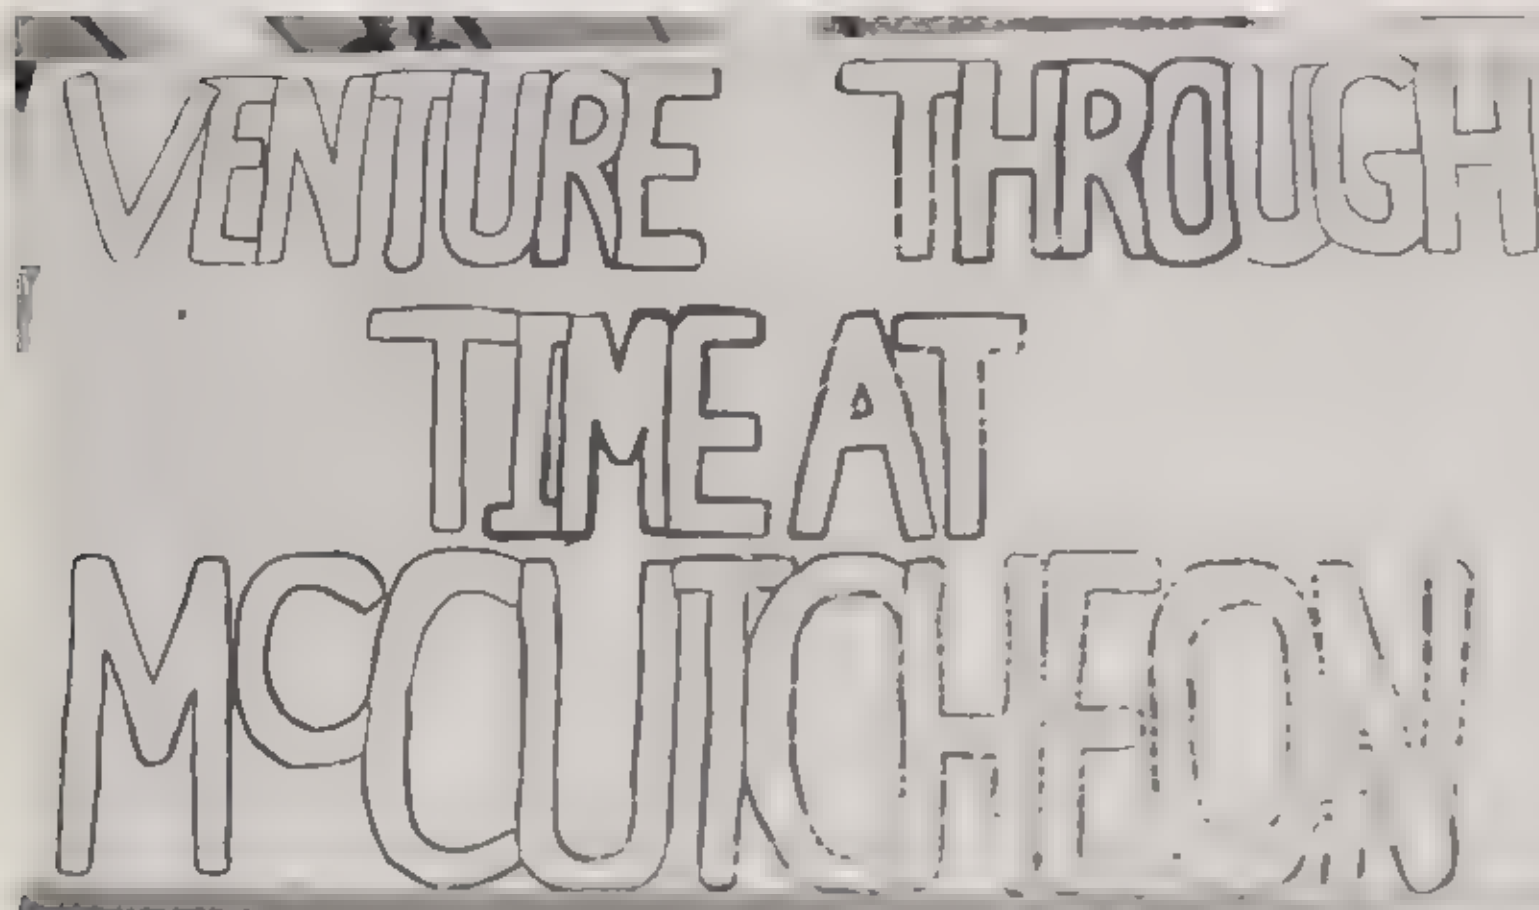 VENTURE THROUGH
TIME AT
MCCUTCHEON